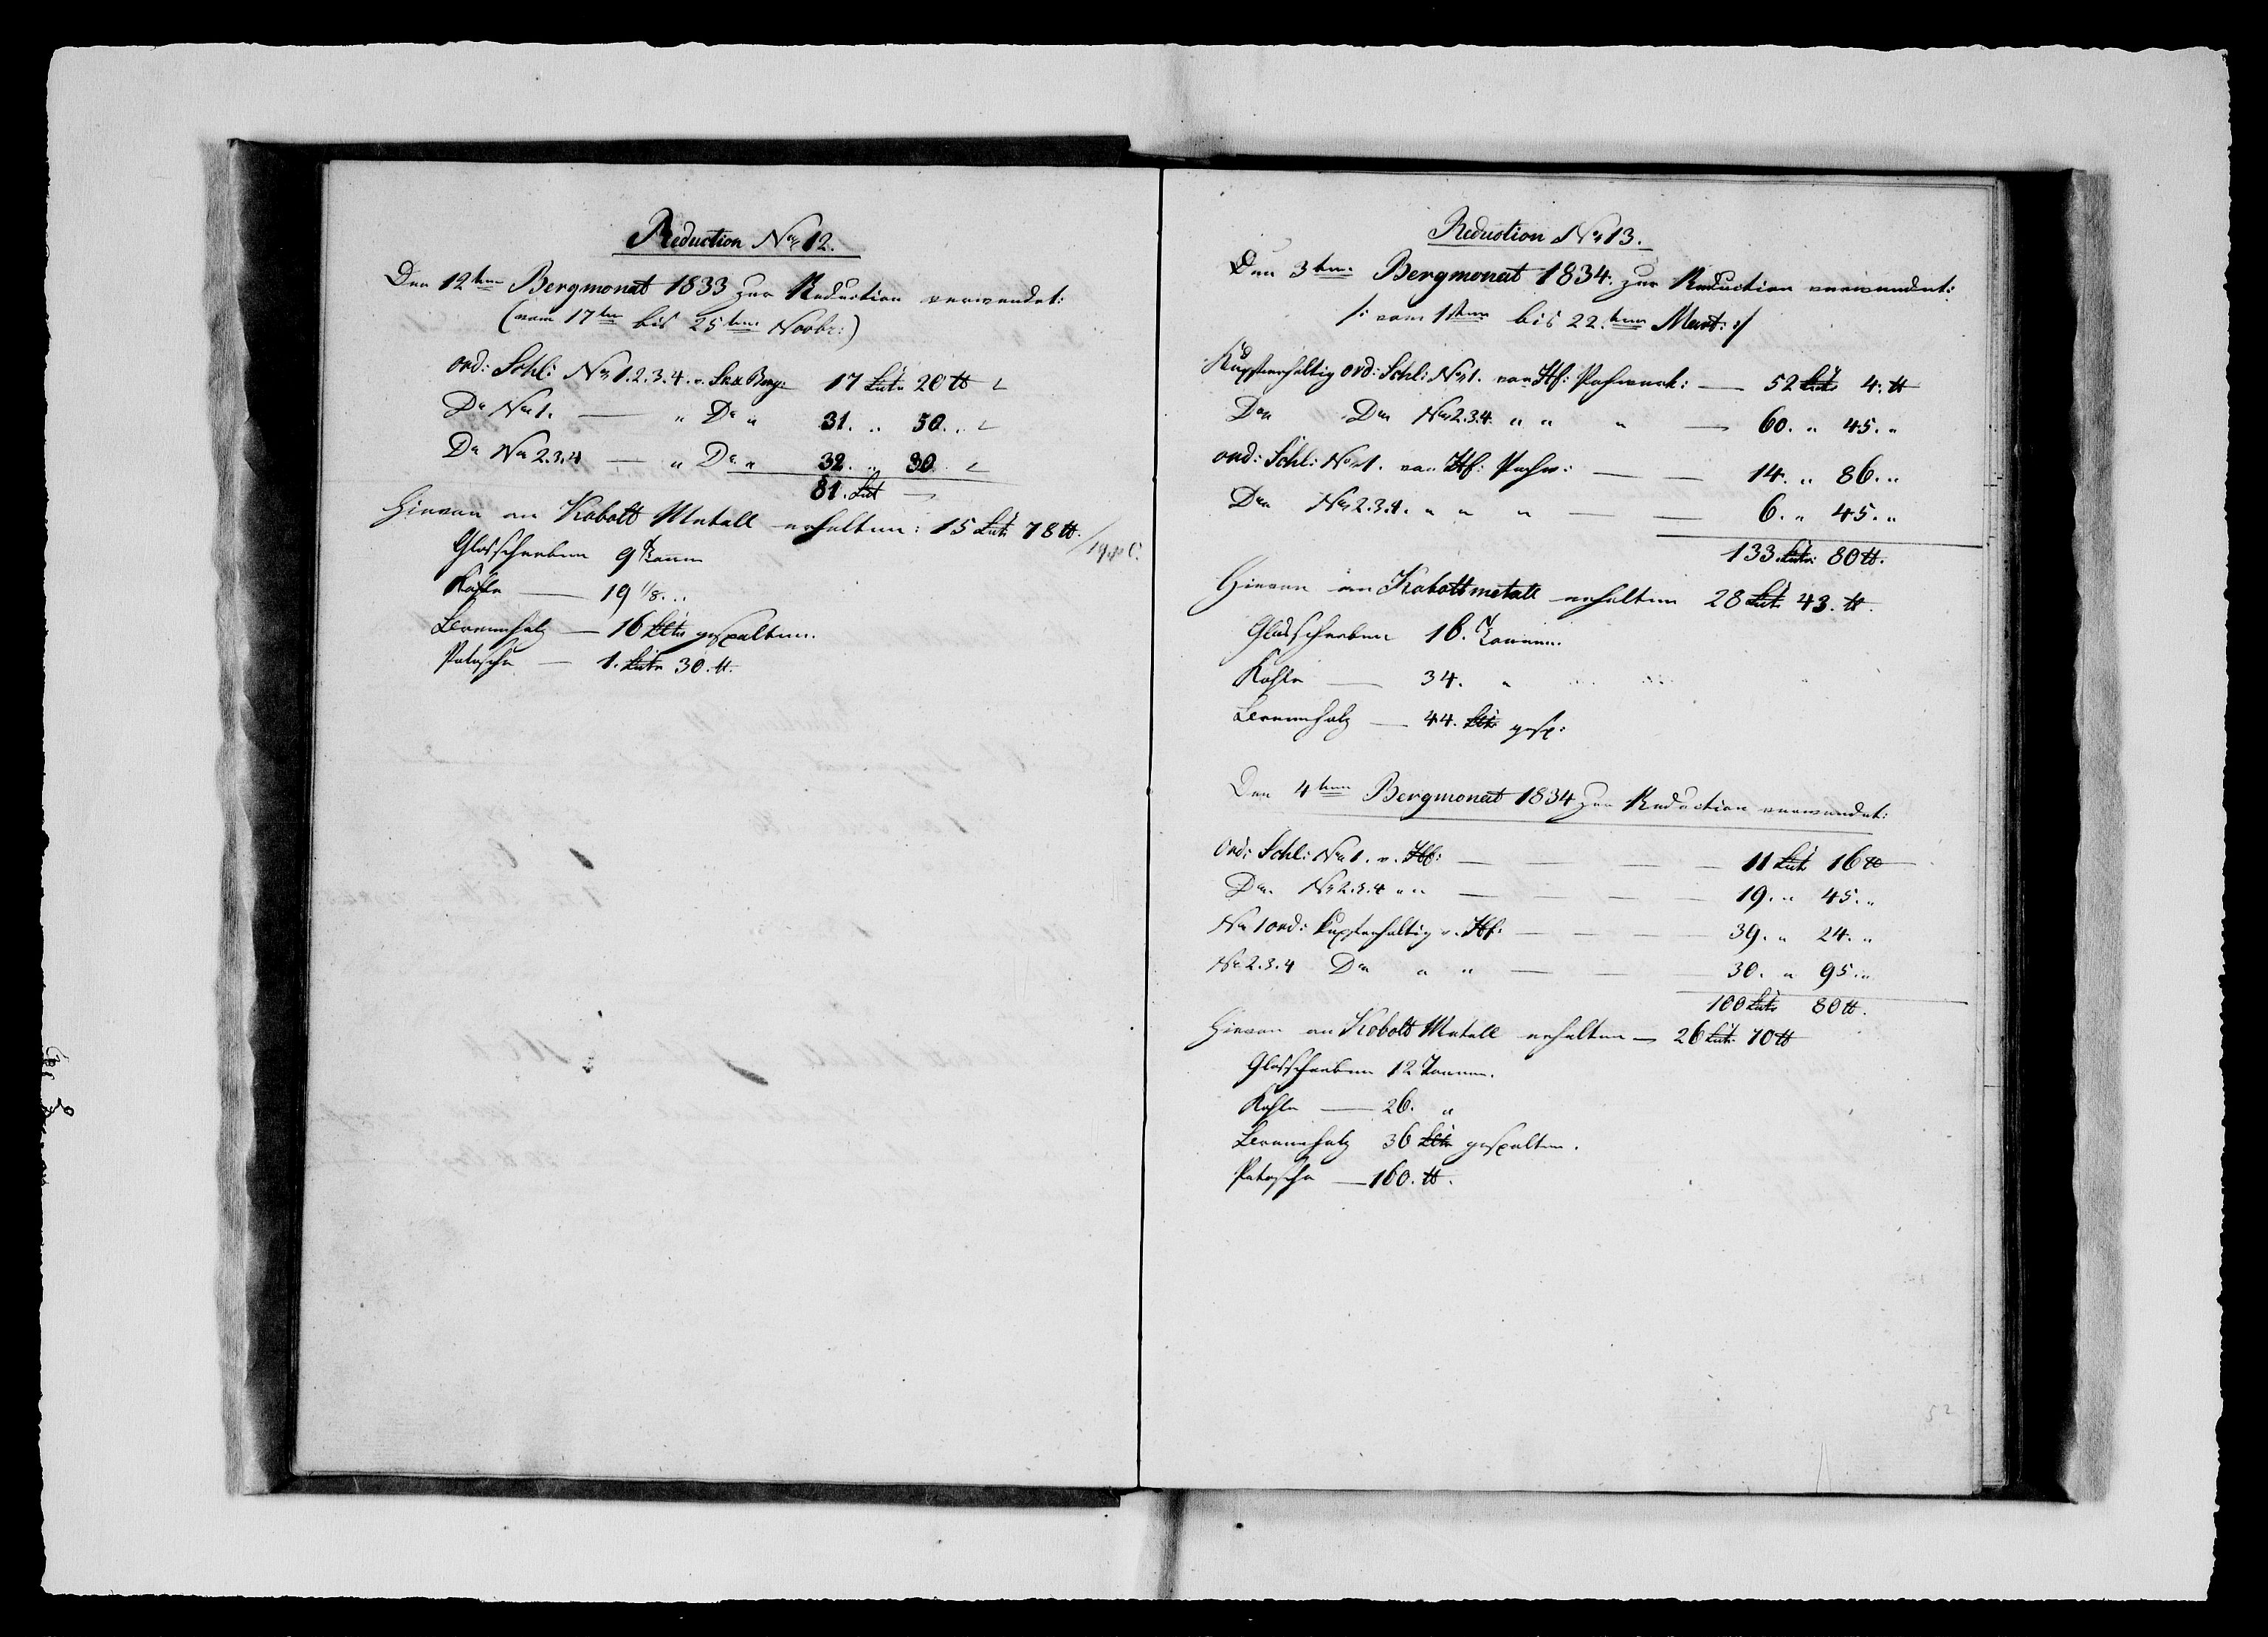 Reduction No 12.
Den 12ten Bergmonat 1833 zur Reduction verwendet:
(vom 17ten bis 25ten Novbr:)
ord: Schli: No 1.2.3.4. v. Sk: Berg: 17 Cntr 20 ℔
Do No 1. — " Do " 31. " 50. "
Do No 2.3.4 — " Do " 32. " 30 "
81. Cnt —
Hievon an Kobolt Metall erhalten: 15 Cntr 78 ℔.
Glasscherben 9 Tonnen
Kohle — 19 1/8. "
Brennholz — 16 Lktr gespalten.
Potasche — 1. Cntr 30. ℔.
Reduction No 13.
Den 3ten Bergmonat 1834. zur Reduction verwendet:
/: vom 1sten bis 22.ten Mart: :/
Kupferhaltig ord: Schli: No 1. von Hf: Pochwerk: — 52 Cntr 4. ℔
Do Do No 2.3.4. " " " — 60. " 45. "
ord: Schli: No 1. von Hf: Pochw: — — 14. " 86. "
Do No 2.3.4. " " " — — 6. " 45. "
133. Cntr: 80 ℔.
Hievon an Koboltmetall erhalten 28 Cntr 43. ℔.
Glasscherben 16. Tonnen.
Kohle — 34. "
Brennholz — 44. Lktr gesp:
Den 4ten Bergmonat 1834 zur Reduction verwendet:
Ord: Schli: No 1. v. Hf: — — — — 11 Cntr 16 ℔
Do No 2.3.4 " " — — — — 19. " 45. "
No 1 ord: kupferhaltig v. Hf: — — — — 39. " 24. "
No 2.3.4 Do " " — — — 30. " 95. "
100 Cntr 80 ℔.
Hievon an Kobolt Metall erhalten — 26 Cntr 70 ℔
Glasscherben 12 Tonnen.
Kohle — 26. "
Brennholz 36 Lktr gespalten.
Potasche — 160. ℔.
52